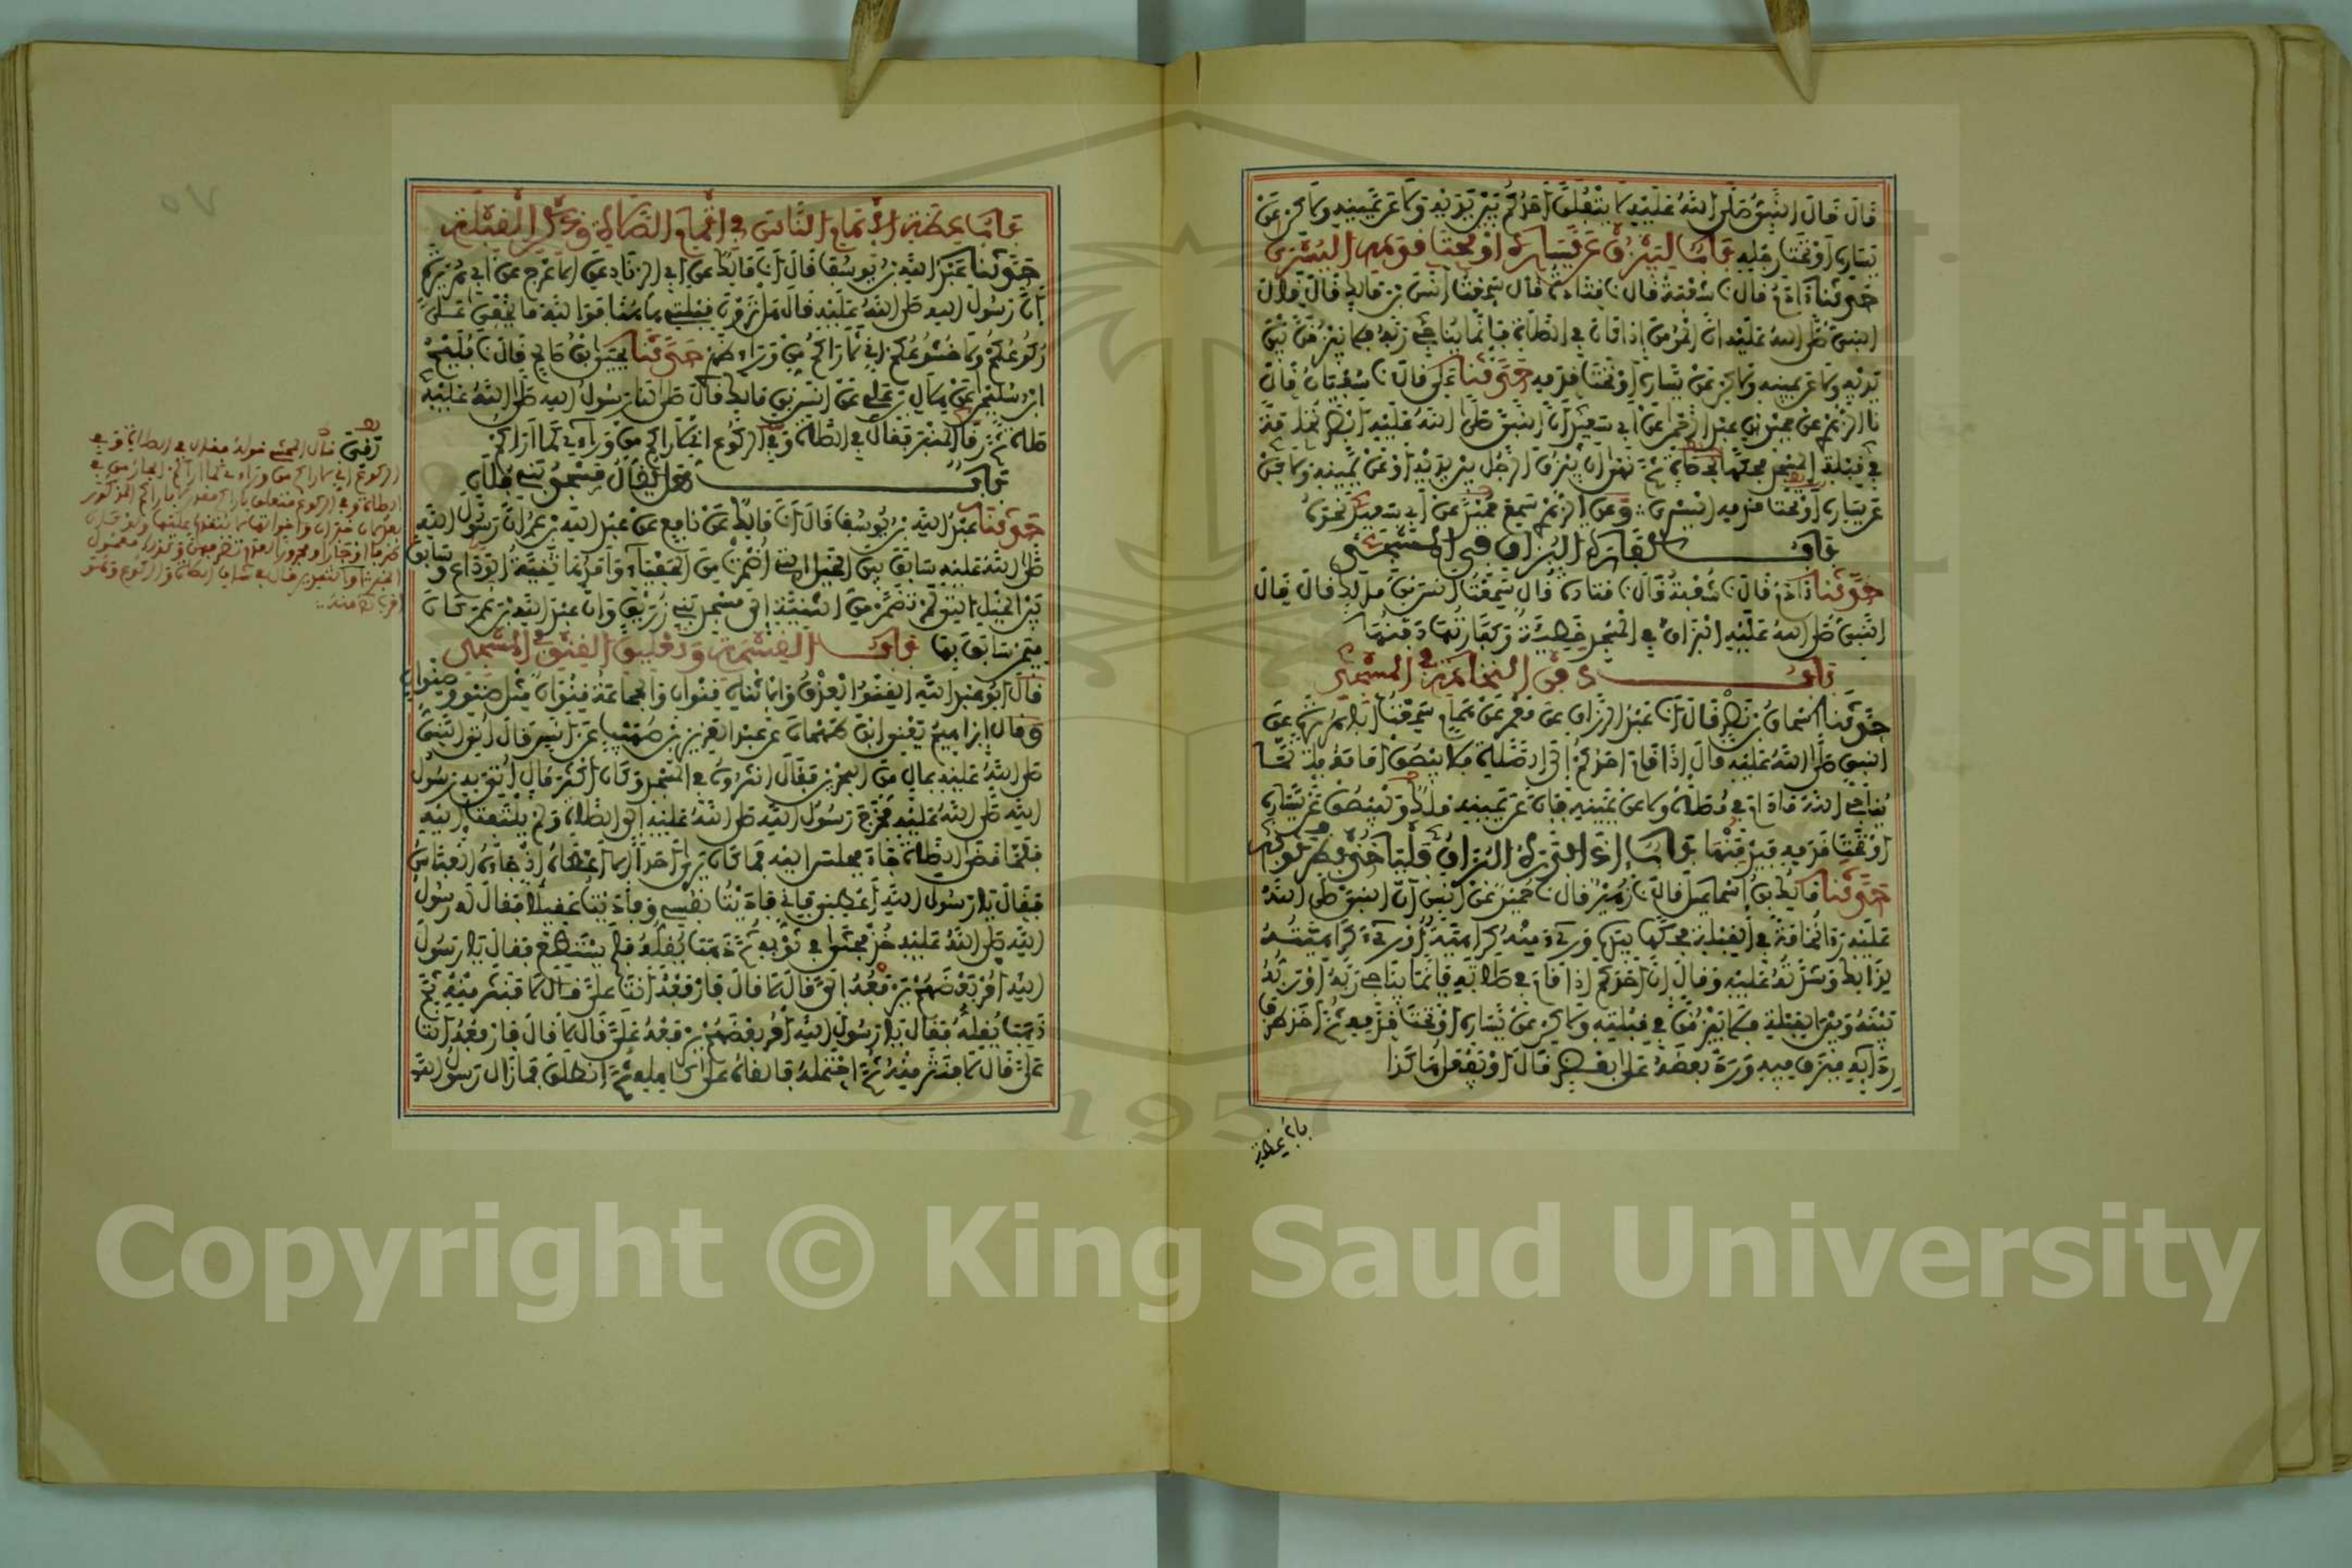 قَالَ قَالَ النَّبِيُّ صَلَّى اللَّهُ عَلَيْهِ لَا يَتْفِلَنَّ أَحَدُكُمْ بَيْنَ يَدَيْهِ وَلَا عَنْ يَمِينِهِ وَلَكِنْ عَنْ
يَسَارِهِ أَوْ تَحْتَ رِجْلِهِ بَاب لِيَبْزُقْ عَنْ يَسَارِهِ أَوْ تَحْتَ قَدَمِهِ الْيُسْرَى
حَدَّثَنَا آدَمُ قَالَ نَا شُعْبَةُ قَالَ نَا قَتَادَةُ قَالَ سَمِعْتُ أَنَسَ بْنَ مَالِكٍ قَالَ قَالَ
النَّبِيُّ صَلَّى اللَّهُ عَلَيْهِ إِنَّ الْمُؤْمِنَ إِذَا كَانَ فِي الصَّلَاةِ فَإِنَّمَا يُنَاجِي رَبَّهُ فَلَا يَبْزُقَنَّ بَيْنَ
يَدَيْهِ وَلَا عَنْ يَمِينِهِ وَلَكِنْ عَنْ يَسَارِهِ أَوْ تَحْتَ قَدَمِهِ حَدَّثَنَا عَلِيٌّ قَالَ نَا سُفْيَانُ قَالَ
نَا الزُّهْرِيُّ عَنْ حُمَيْدِ بْنِ عَبْدِ الرَّحْمَنِ عَنْ أَبِي سَعِيدٍ أَنَّ النَّبِيَّ صَلَّى اللَّهُ عَلَيْهِ أَبْصَرَ نُخَامَةً
فِي قِبْلَةِ الْمَسْجِدِ فَحَكَّهَا بِحَصَاةٍ ثُمَّ نَهَى أَنْ يَبْزُقَ الرَّجُلُ بَيْنَ يَدَيْهِ أَوْ عَنْ يَمِينِهِ وَلَكِنْ
عَنْ يَسَارِهِ أَوْ تَحْتَ قَدَمِهِ الْيُسْرَى وَعَنِ الزُّهْرِيِّ سَمِعَ حُمَيْدًا عَنْ أَبِي سَعِيدٍ نَحْوَهُ
بَاب كَفَّارَةِ الْبُزَاقِ فِي الْمَسْجِدِ
حَدَّثَنَا آدَمُ قَالَ نَا شُعْبَةُ قَالَ نَا قَتَادَةُ قَالَ سَمِعْتُ أَنَسَ بْنَ مَالِكٍ قَالَ قَالَ
النَّبِيُّ صَلَّى اللَّهُ عَلَيْهِ الْبُزَاقُ فِي الْمَسْجِدِ خَطِيَّةٌ وَكَفَّارَتُهَا دَفْنُهَا
بَاب دَفْنِ النُّخَامَةِ فِي الْمَسْجِدِ
حَدَّثَنَا إِسْحَاقُ بْنُ نَصْرٍ قَالَ أَنَا عَبْدُ الرَّزَّاقِ عَنْ مَعْمَرٍ عَنْ هَمَّامٍ سَمِعْتُ أَبَا هُرَيْرَةَ عَنِ
النَّبِيِّ صَلَّى اللَّهُ عَلَيْهِ قَالَ إِذَا قَامَ أَحَدُكُمْ إِلَى الصَّلَاةِ فَلَا يَبْصُقْ أَمَامَهُ فَإِنَّمَا
يُنَاجِي اللَّهَ مَادَامَ فِي مُصَلَّاهُ وَلَا عَنْ يَمِينِهِ فَإِنَّ عَنْ يَمِينِهِ مَلَكًا وَلْيَبْصُقْ عَنْ يَسَارِهِ
أَوْ تَحْتَ قَدَمِهِ فَيَدْفِنُهَا بَاب إِذَا بَدَرَهُ الْبُزَاقُ فَلْيَأْخُذْ بِطَرَفِ ثَوْبِهِ
حَدَّثَنَا مَالِكُ بْنُ إِسْمَاعِيلَ قَالَ نَا زُهَيْرٌ قَالَ نَا حُمَيْدٌ عَنْ أَنَسٍ أَنَّ النَّبِيَّ صَلَّى اللَّهُ
عَلَيْهِ رَأَى نُخَامَةً فِي الْقِبْلَةِ فَحَكَّهَا بِيَدِهِ وَرُئِيَ مِنْهُ كَرَاهِيَةٌ أَوْ رُئِيَ كَرَاهِيَتُهُ
لِذَلِكَ وَشِدَّتُهُ عَلَيْهِ وَقَالَ إِنَّ أَحَدَكُمْ إِذَا قَامَ فِي صَلَاتِهِ فَإِنَّمَا يُنَاجِي رَبَّهُ أَوْ رَبُّهُ
بَيْنَهُ وَبَيْنَ الْقِبْلَةِ فَلَا يَبْزُقَنَّ فِي قِبْلَتِهِ وَلَكِنْ عَنْ يَسَارِهِ أَوْ تَحْتَ قَدَمِهِ ثُمَّ أَخَذَ طَرَفَ
رِدَائِهِ فَبَزَقَ فِيهِ وَرَدَّ بَعْضَهُ عَلَى بَعْضٍ قَالَ أَوْ يَفْعَلُ هَكَذَا
باب عظة
بَاب عِظَةِ الْإِمَامِ النَّاسَ فِي إِتْمَامِ الصَّلَاةِ وَذِكْرِ الْقِبْلَةِ
حَدَّثَنَا عَبْدُ اللَّهِ بْنُ يُوسُفَ قَالَ أَنَا مَالِكٌ عَنْ أَبِي الزِّنَادِ عَنِ الْأَعْرَجِ عَنْ أَبِي هُرَيْرَةَ
أَنَّ رَسُولَ اللَّهِ صَلَّى اللَّهُ عَلَيْهِ قَالَ هَلْ تَرَوْنَ قِبْلَتِي هَاهُنَا فَوَاللَّهِ مَا يَخْفَى عَلَيَّ
رُكُوعُكُمْ وَلَا خُشُوعُكُمْ إِنِّي لَأَرَاكُمْ مِنْ وَرَاءِ ظَهْرِي حَدَّثَنَا يَحْيَى بْنُ صَالِحٍ قَالَ نَا فُلَيْحُ
ابْنُ سُلَيْمَانَ عَنْ هِلَالِ بْنِ عَلِيٍّ عَنْ أَنَسِ بْنِ مَالِكٍ قَالَ صَلَّى لَنَا رَسُولُ اللَّهِ صَلَّى اللَّهُ عَلَيْهِ
صَلَاةً ثُمَّ رَقَا الْمِنْبَرَ فَقَالَ فِي الصَّلَاةِ وَفِي الرُّكُوعِ إِنِّي لَأَرَاكُمْ مِنْ وَرَائِي كَمَا أَرَاكُمْ
بَاب هَلْ يُقَالُ مَسْجِدُ بَنِي فُلَانٍ
حَدَّثَنَا عَبْدُ اللَّهِ بْنُ يُوسُفَ قَالَ أَنَا مَالِكٌ عَنْ نَافِعٍ عَنْ عَبْدِ اللَّهِ بْنِ عُمَرَ أَنَّ رَسُولَ اللَّهِ
صَلَّى اللَّهُ عَلَيْهِ سَابَقَ بَيْنَ الْخَيْلِ الَّتِي أُضْمِرَتْ مِنَ الْحَفْيَاءِ وَأَمَدُهَا ثَنِيَّةُ الْوَدَاعِ وَسَابَقَ
بَيْنَ الْخَيْلِ الَّتِي لَمْ تُضْمَرْ مِنَ الثَّنِيَّةِ إِلَى مَسْجِدِ بَنِي زُرَيْقٍ وَأَنَّ عَبْدَ اللَّهِ بْنَ عُمَرَ كَانَ
فِيمَنْ سَابَقَ بِهَا بَاب الْقِسْمَةِ وَتَعْلِيقِ الْقِنْوِ فِي الْمَسْجِدِ
قَالَ أَبُو عَبْدِ اللَّهِ الْقِنْوُ الْعِذْقُ وَالِاثْنَانِ قِنْوَانِ وَالْجَمَاعَةُ قِنْوَانٌ مِثْلُ صِنْوٍ وَصِنْوَانٍ
وَقَالَ إِبْرَاهِيمُ يَعْنِي ابْنَ طَهْمَانَ عَنْ عَبْدِ الْعَزِيزِ بْنِ صُهَيْبٍ عَنْ أَنَسٍ قَالَ أُتِيَ النَّبِيُّ
صَلَّى اللَّهُ عَلَيْهِ بِمَالٍ مِنَ الْبَحْرَيْنِ فَقَالَ انْثُرُوهُ فِي الْمَسْجِدِ وَكَانَ أَكْثَرَ مَالٍ أُتِيَ بِهِ رَسُولُ
اللَّهِ صَلَّى اللَّهُ عَلَيْهِ فَخَرَجَ رَسُولُ اللَّهِ صَلَّى اللَّهُ عَلَيْهِ إِلَى الصَّلَاةِ وَلَمْ يَلْتَفِتْ إِلَيْهِ
فَلَمَّا قَضَى الصَّلَاةَ جَاءَ فَجَلَسَ إِلَيْهِ فَمَا كَانَ يَرَى أَحَدًا إِلَّا أَعْطَاهُ إِذْ جَاءَهُ الْعَبَّاسُ
فَقَالَ يَا رَسُولَ اللَّهِ أَعْطِنِي فَإِنِّي فَادَيْتُ نَفْسِي وَفَادَيْتُ عَقِيلًا فَقَالَ لَهُ رَسُولُ
اللَّهِ صَلَّى اللَّهُ عَلَيْهِ خُذْ فَحَثَا فِي ثَوْبِهِ ثُمَّ ذَهَبَ يُقِلُّهُ فَلَمْ يَسْتَطِعْ فَقَالَ يَا رَسُولَ
اللَّهِ اؤْمُرْ بَعْضَهُمْ يَرْفَعْهُ إِلَيَّ قَالَ لَا قَالَ فَارْفَعْهُ أَنْتَ عَلَيَّ قَالَ لَا فَنَثَرَ مِنْهُ ثُمَّ
ذَهَبَ يُقِلُّهُ فَقَالَ يَا رَسُولَ اللَّهِ اؤْمُرْ بَعْضَهُمْ يَرْفَعْهُ عَلَيَّ قَالَ لَا قَالَ فَارْفَعْهُ أَنْتَ
عَلَيَّ قَالَ لَا فَنَثَرَ مِنْهُ ثُمَّ احْتَمَلَهُ فَأَلْقَاهُ عَلَى كَاهِلِهِ ثُمَّ انْطَلَقَ فَمَا زَالَ رَسُولُ اللَّهِ
Copyright © King Saud University
1957